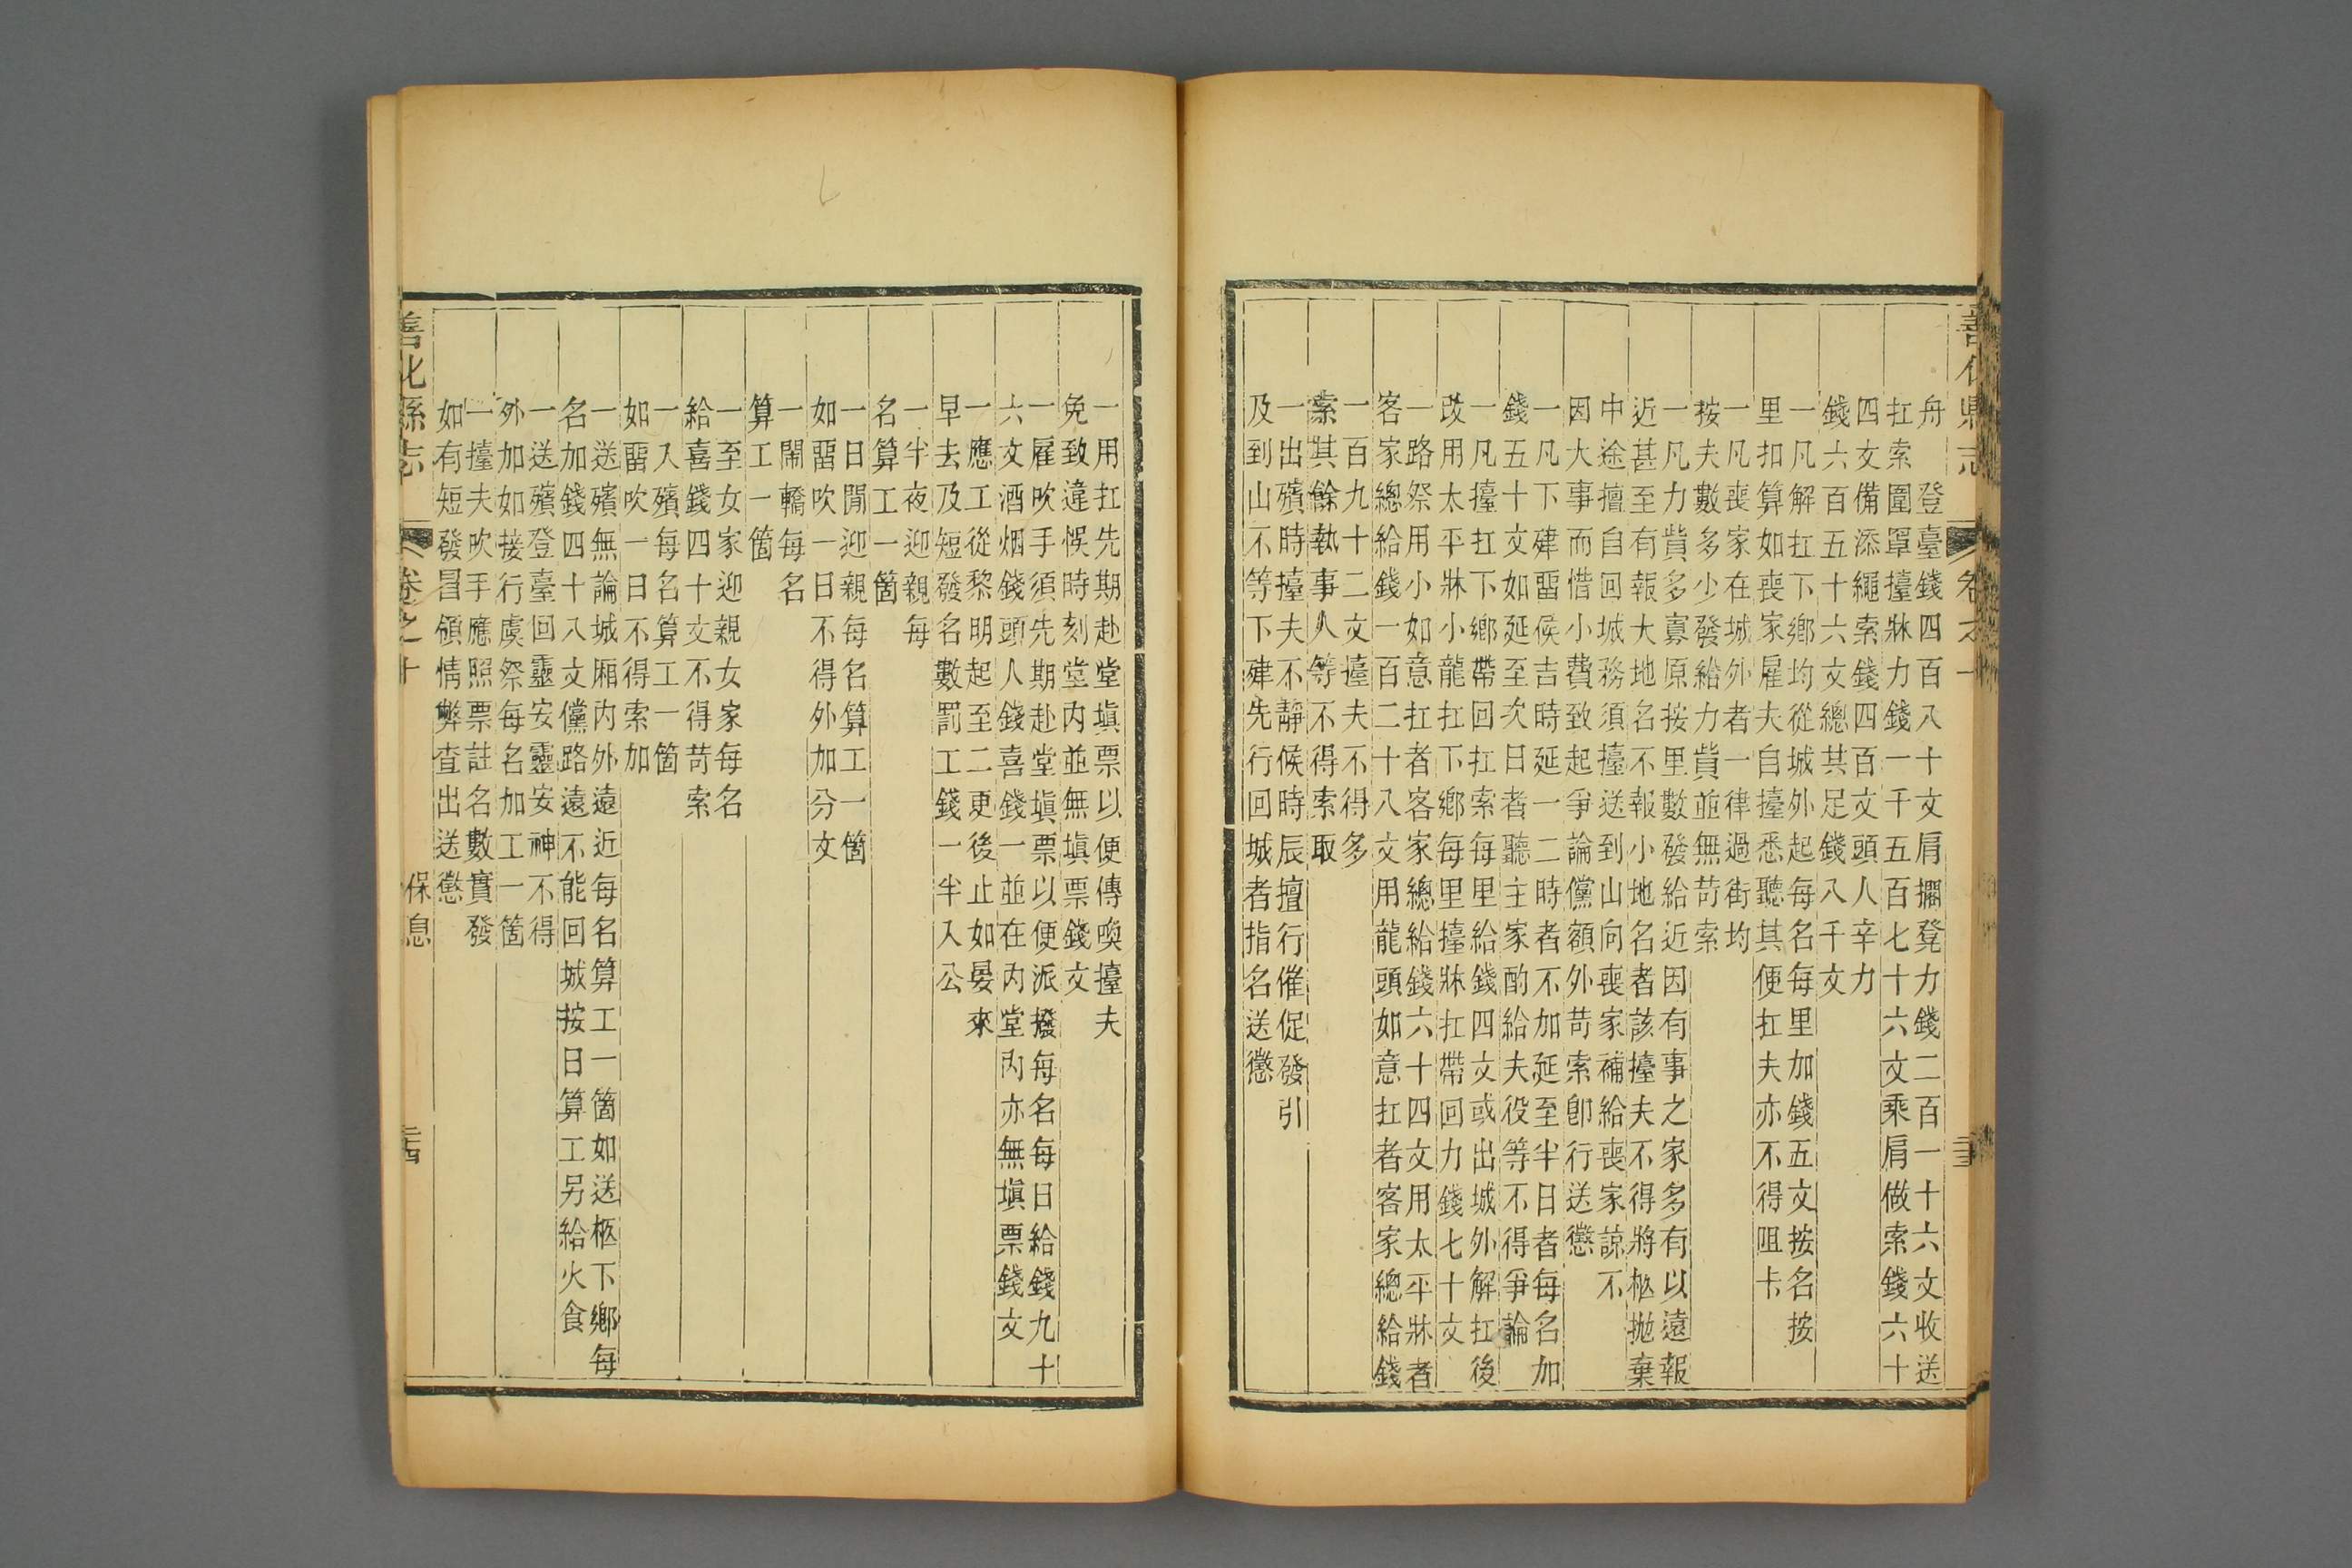 善化縣志 卷之十一 三三
舟　登臺錢四百八十文肩攔凳力錢二百一十六文收送
扛索圍罩擡牀力錢一千五百七十六文乘肩做索錢六十
四文備添繩索錢四百文頭人辛力
錢六百五十六文總其足錢八千文
一凡解扛下鄉均從城外起每名每里加錢五文按名按
里扣算如喪家雇夫自擡悉聽其便扛夫亦不得阻卡
一凡喪家在城外者一律過街均
按夫數多少發給力貲並無苛索
一凡力貲多寡原按里數發給近因有事之家多有以遠報
近甚至有報大地名不報小地名者該擡夫不得將柩拋棄
中途擅自回城務須擡送到山向喪家補給喪家諒不
因大事而惜小費致起爭論儻額外苛索卽行送懲
一凡下肂畱候吉時延一二時者不加延至半日者每名加
錢五十文如延至次日者聽主家酌給夫役等不得爭論
一凡擡扛下鄉帶回扛索每里給錢四文或出城外解扛後
改用太平牀小龍扛下鄉每里擡牀扛帶回力錢七十文
一路祭用小如意扛者客家總給錢六十四文用太平牀者
客家總給錢一百二十八文用龍頭如意扛者客家總給錢
一百九十二文擡夫不得多
索其餘執事人等不得索取
一出殯時擡夫不靜候時辰擅行催促發引
及到山不等下肂先行回城者指名送懲
一用扛先期赴堂塡票以便傳喚擡夫
免致違悞時刻堂內並無塡票錢文
一雇吹手須先期赴堂塡票以便派撥每名每日給錢九十
六文酒烟錢頭人錢喜錢一並在內堂內亦無塡票錢文
一應工從黎明起至二更後止如晏來
早去及短發名數罰工錢一半入公
一半夜迎親每
名算工一箇
一日閒迎親每名算工一箇
如畱吹一日不得外加分文
一鬧轎每名
算工一箇
一至女家迎親女家每名
給喜錢四十文不得苛索
一入殯每名算工一箇
如畱吹一日不得索加
一送殯無論城厢內外遠近每名算工一箇如送柩下鄉每
名加錢四十八文儻路遠不能回城按日算工另給火食
一送殯登臺回靈安靈安神不得
外加如接行虞祭每名加工一箇
一擡夫吹手應照票註名數實發
如有短發冒領情弊查出送懲
善化縣志 卷之十一 保息 三四